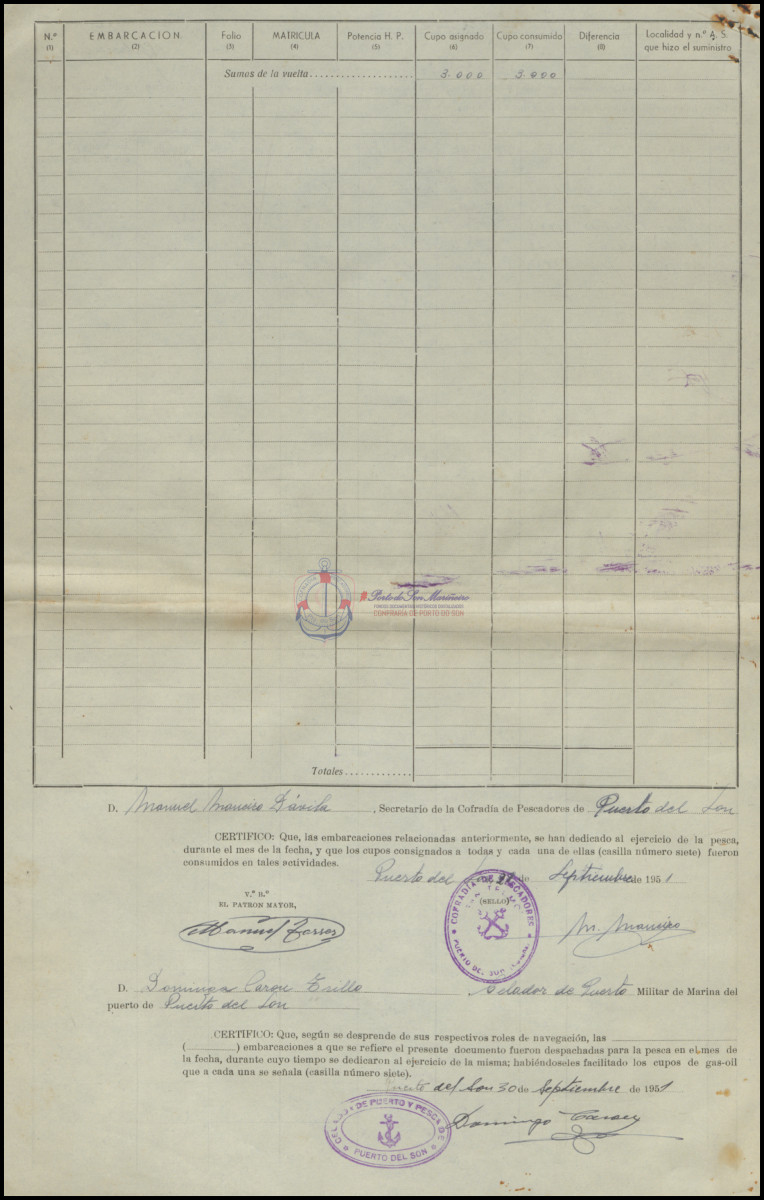 N.º EMBARCACION Folio MATRICULA Potencia H. P. Cupo asignado Cupo consumido Diferencia Localidad y n.º A. S.
(1) (2) (3) (4) (5) (6) (7) (8) que hizo el suministro
Sumas de la vuelta.................... 3.000 3.000
Porto do Son Mariñeiro
CONFRARÍA DE PORTO DO SON
Totales.............
D. Manuel Maneiro Dávila, Secretario de la Cofradía de Pescadores de Puerto del Son
CERTIFICO: Que, las embarcaciones relacionadas anteriormente, se han dedicado al ejercicio de la pesca,
durante el mes de la fecha, y que los cupos consignados a todas y cada una de ellas (casilla número siete) fueron
consumidos en tales actividades.
Puerto del de Septiembre de 1951
V.º B.º
EL PATRON MAYOR,
(SELLO)
COFRADÍA DE PESCADORES
PUERTO DEL SON
Manuel Torres
M. Maneiro
D. Domingo Carou Trillo Celador de Puerto Militar de Marina del
puerto de Puerto del Son
CERTIFICO: Que, según se desprende de sus respectivos roles de navegación, las
( ) embarcaciones a que se refiere el presente documento fueron despachadas para la pesca en el mes de
la fecha, durante cuyo tiempo se dedicaron al ejercicio de la misma; habiéndoseles facilitado los cupos de gas-oil
que a cada una se señala (casilla número siete).
Puerto del Son 30 de Septiembre de 1951
DE PUERTO Y PESCA DE
PUERTO DEL SON
Domingo Carou